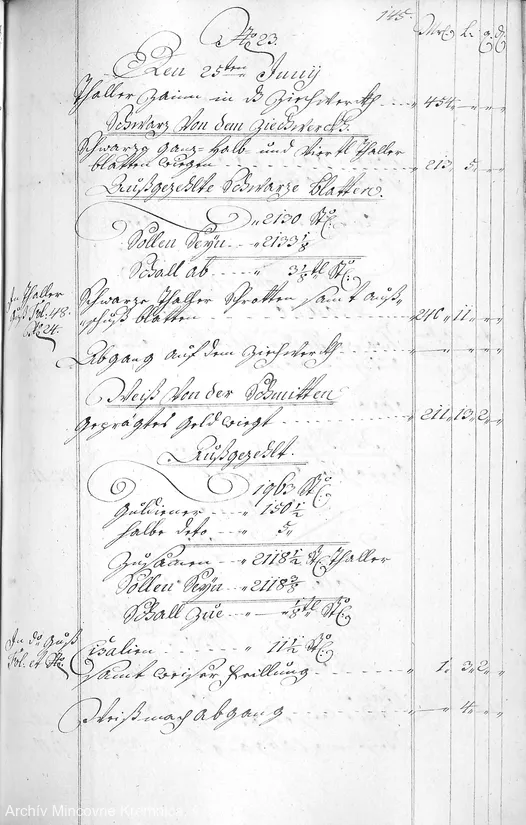 145.
No. 23.
Mrk. l. q. d.
Den 25ten Junij
Thaller Zainn in das Ziehwerckh 454
Schwarz Von dem Ziechwerckh.
Schwarze Ganz- Halb- und Viertl Thaller
blatten wiegen 213 5
Außgezehlte Schwarze blatten.
2130 St.
Sollen Seyn 2133 1/8
Schall ab 3 1/8 tl St.
In Thaller
Guß Fol. 48.
No. 24.
Schwarze Thaller Schrotten samt auß-
schuß blatten 240 11
Abgang auf dem Ziechwerckh
Weiß Von der Schmitten
Geprägtes Geld wiegt 211 13 2
Außgezehlt.
1963 St.
Guldiener 150 1/2
halbe deto 5
Zusamen 2118 1/2 St. Thaller
Sollen Seyn 2118 3/8
Schall Zue 1/8 tl St.
In do. Guß
Fol. et No.
Cisalien 11 1/2 St.
samt weiser Feillung 1 3 2
Weißmach Abgang 4
Archív Mincovne Kremnica